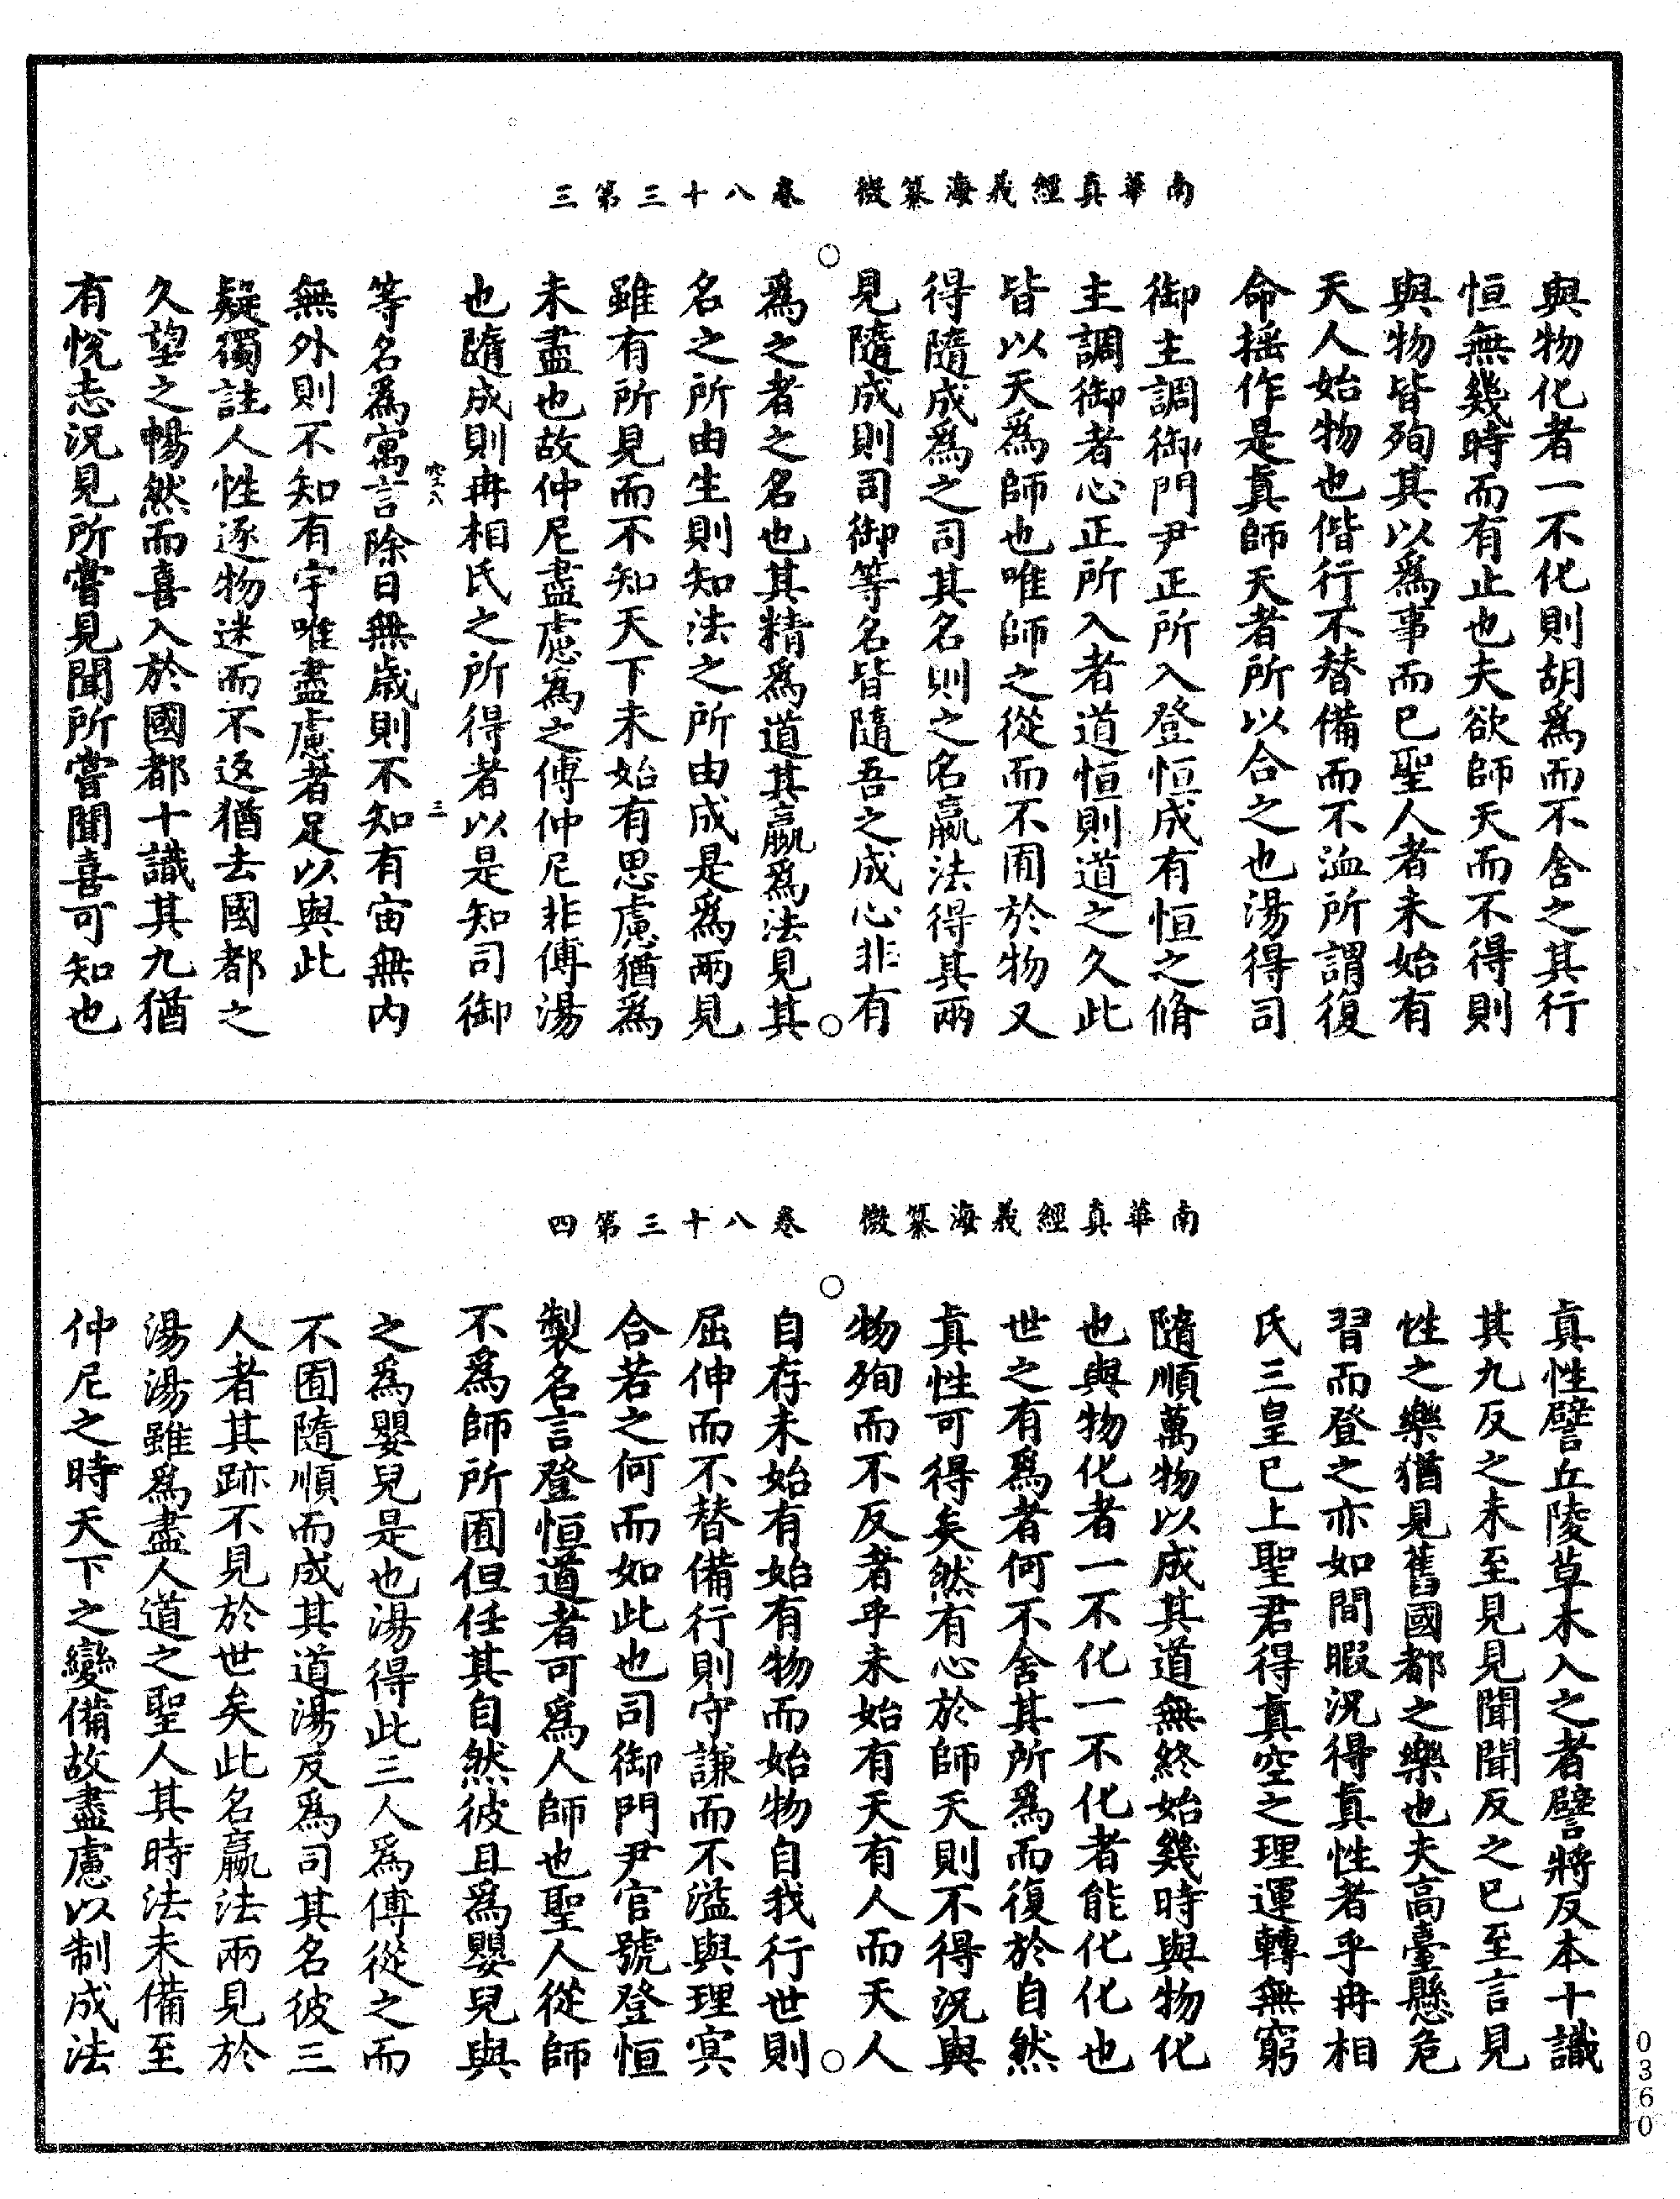 南華真經義海纂微　卷八十三第三
與物化者一不化則胡爲而不舍之其行
恒無幾時而有止也夫欲師天而不得則
與物皆殉其以爲事而已聖人者未始有
天人始物也偕行不替備而不洫所謂復
命揺作是真師天者所以合之也湯得司
御主調御門尹正所入登恒成有恒之脩
主調御者心正所入者道恒則道之久此
皆以天爲師也唯師之從而不囿於物又
得隨成爲之司其名則之名嬴法得其兩
見隨成則司御等名皆隨吾之成心非有
爲之者之名也其精爲道其嬴爲法見其
名之所由生則知法之所由成是爲兩見
雖有所見而不知天下未始有思慮猶爲
未盡也故仲尼盡慮爲之傅仲尼非傅湯
也隨成則冉相氏之所得者以是知司御
等名爲寓言除日無歲則不知有宙無内
無外則不知有宇唯盡慮者足以與此
疑獨註人性逐物迷而不返猶去國都之
久望之暢然而喜入於國都十識其九猶
有悅志況見所嘗見聞所嘗聞喜可知也
三
南華真經義海纂微　卷八十三第四
真性譬丘陵草木入之者譬將反本十識
其九反之未至見見聞聞反之已至言見
性之樂猶見舊國都之樂也夫高臺懸危
習而登之亦如間暇況得真性者乎冉相
氏三皇已上聖君得真空之理運轉無窮
隨順萬物以成其道無終始幾時與物化
也與物化者一不化一不化者能化化也
世之有爲者何不舍其所爲而復於自然
真性可得矣然有心於師天則不得況與
物殉而不反者乎未始有天有人而天人
自存未始有始有物而始物自我行世則
屈伸而不替備行則守謙而不溢與理㝠
合若之何而如此也司御門尹官號登恒
製名言登恒道者可爲人師也聖人從師
不爲師所囿但任其自然彼且爲嬰兒與
之爲嬰兒是也湯得此三人爲傅從之而
不囿隨順而成其道湯反爲司其名彼三
人者其跡不見於世矣此名嬴法兩見於
湯湯雖爲盡人道之聖人其時法未備至
仲尼之時天下之變備故盡慮以制成法
0360